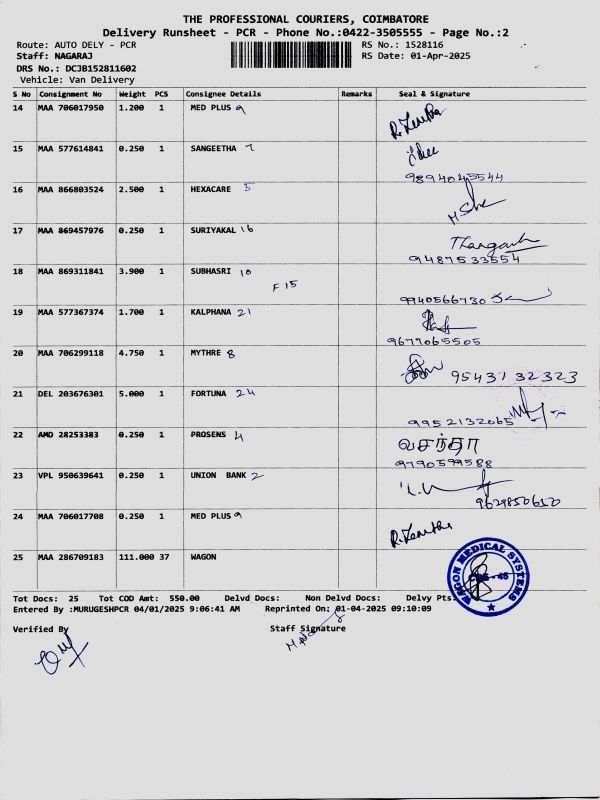 THE PROFESSIONAL COURIERS, COIMBATORE
Delivery Runsheet - PCR - Phone No.:0422-3505555 - Page No.:2
Route: AUTO DELY - PCR RS No.: 1528116
Staff: NAGARAJ RS Date: 01-Apr-2025
DRS No.: DCJB152811602
Vehicle: Van Delivery
S No Consignment No Weight PCS Consignee Details Remarks Seal & Signature
14 MAA 706017950 1.200 1 MED PLUS 9
15 MAA 577614841 0.250 1 SANGEETHA 7
9894045544
16 MAA 866803524 2.500 1 HEXACARE 5
17 MAA 869457976 0.250 1 SURIYAKAL 16
9487533554
18 MAA 869311841 3.900 1 SUBHASRI 10
F 15
9940566730
19 MAA 577367374 1.700 1 KALPHANA 21
9677065505
20 MAA 706299118 4.750 1 MYTHRE 8
95431 32323
21 DEL 203676301 5.000 1 FORTUNA 24
9952132065
22 AMD 28253383 0.250 1 PROSENS 4 வசந்தா
9790599588
23 VPL 950639641 0.250 1 UNION BANK 2
9629850610
24 MAA 706017708 0.250 1 MED PLUS 9
25 MAA 286709183 111.000 37 WAGON
WAGON MEDICAL SYSTEMS
Tot Docs: 25 Tot COD Amt: 550.00 Delvd Docs: Non Delvd Docs: Delvy Pts:
Entered By :MURUGESHPCR 04/01/2025 9:06:41 AM Reprinted On: 01-04-2025 09:10:09
Verified By Staff Signature